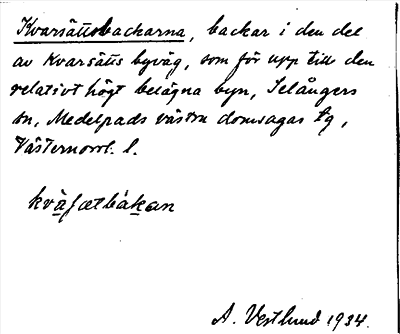 Kvarsättsbackarna, backar i den del
av Kvarsätts byväg, som för upp till den
relativt högt belägna byn, Selångers
sn, Medelpads västra domsagas tg,
Västernorrl. l.
kvàſætbákan
A. Vestlund 1934.